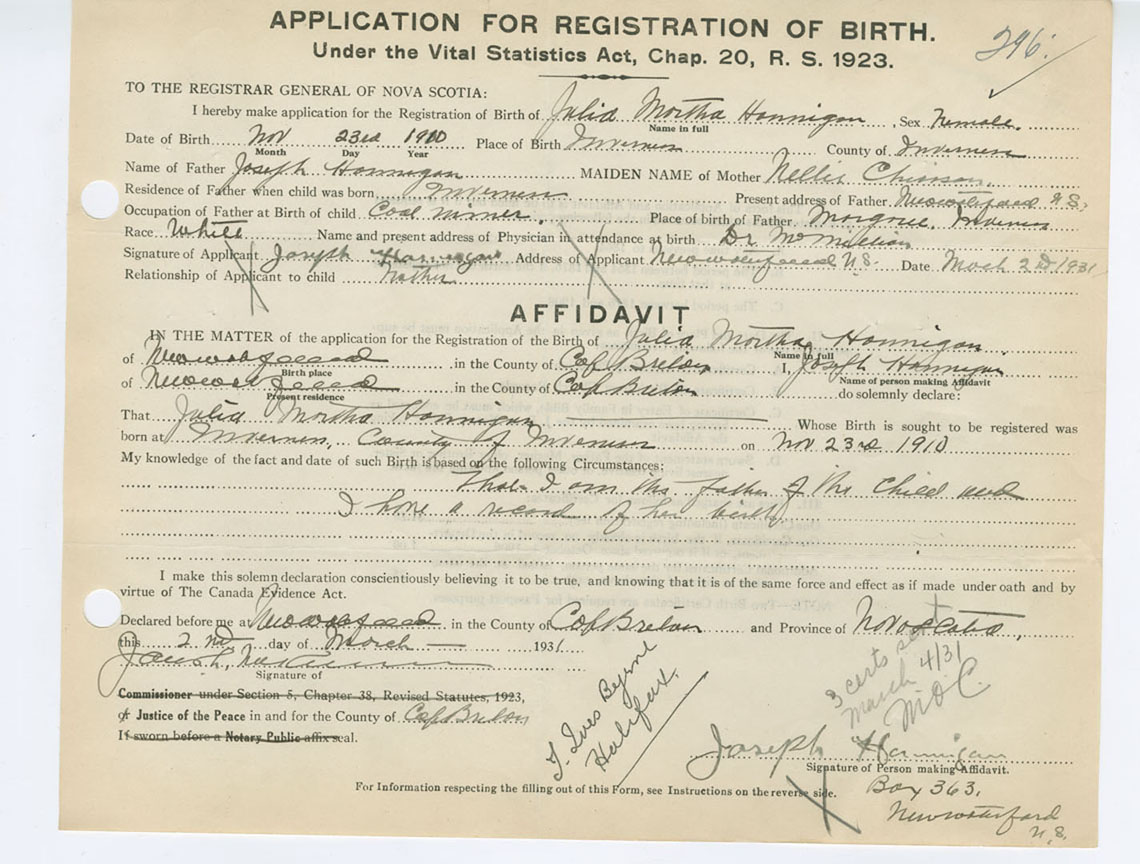 APPLICATION FOR REGISTRATION OF BIRTH.
296.
Under the Vital Statistics Act, Chap. 20, R. S. 1923.
TO THE REGISTRAR GENERAL OF NOVA SCOTIA:
I hereby make application for the Registration of Birth of Julia Mortha Hannigan, Sex Female.
Name in full
Date of Birth Nov 23rd 1910 Place of Birth Inverness County of Inverness
Month Day Year
Name of Father Joseph Hannigan MAIDEN NAME of Mother Nellie Chiasson
Residence of Father when child was born Inverness Present address of Father Newwaterford N.S.
Occupation of Father at Birth of child Coal miner. Place of birth of Father Margree, Inverness
Race White Name and present address of Physician in attendance at birth Dr McMillan
Signature of Applicant Joseph Hannigan Address of Applicant Newwaterford N.S. Date March 2nd 1931
Relationship of Applicant to child Father
AFFIDAVIT
IN THE MATTER of the application for the Registration of the Birth of Julia Mortha Hannigan
Name in full
of Newwaterford in the County of Cap Breton I, Joseph Hannigan
Birth place Name of person making Affidavit
of Newwaterford in the County of Cap Breton do solemnly declare:
Present residence
That Julia Mortha Hannigan Whose Birth is sought to be registered was
born at Inverness, County of Inverness on Nov 23rd 1910
My knowledge of the fact and date of such Birth is based on the following Circumstances:
That I am the father of the child and
I have a record of her birth
I make this solemn declaration conscientiously believing it to be true, and knowing that it is of the same force and effect as if made under oath and by
virtue of The Canada Evidence Act.
Declared before me at Newwaterford in the County of Cap Breton and Province of Nova Scotia,
this 2nd day of March 1931
Signature of
Commissioner under Section 5, Chapter 38, Revised Statutes, 1923,
or Justice of the Peace in and for the County of Cap Breton
If sworn before a Notary Public affix seal.
T. Ives Byrne
Halifax.
3 certs
March 4/31
M.O.C.
Joseph Hannigan
Signature of Person making Affidavit.
For Information respecting the filling out of this Form, see Instructions on the reverse side.
Box 363,
Newwaterford
N.S.